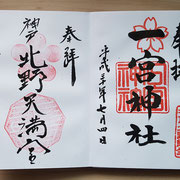 奉拝
一宮神社
平成三十年七月四日
奉拝
神戸
北野天満宮